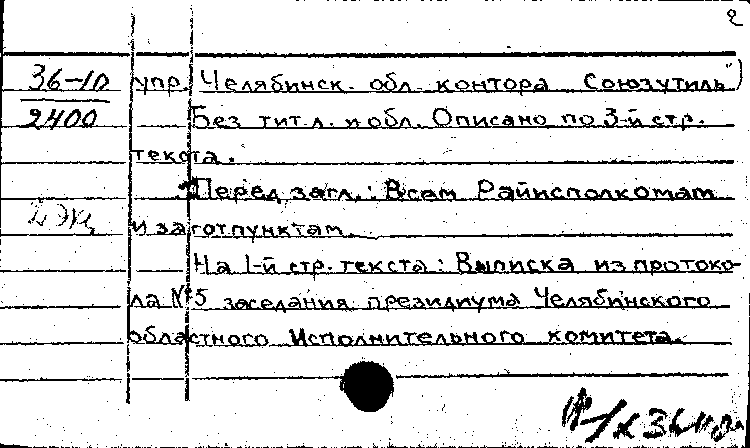 2
36-10 упр. (Челябинск. обл. контора Союзутиль")
2400 Без тит. л. и обл. Описано по 3-й стр.
текста.
Перед загл.: Всем Райисполкомам
2 экз и заготпунктам.
На 1-й стр. текста: Выписка из протоко-
ла №5 заседания президиума Челябинского
областного Исполнительного комитета.